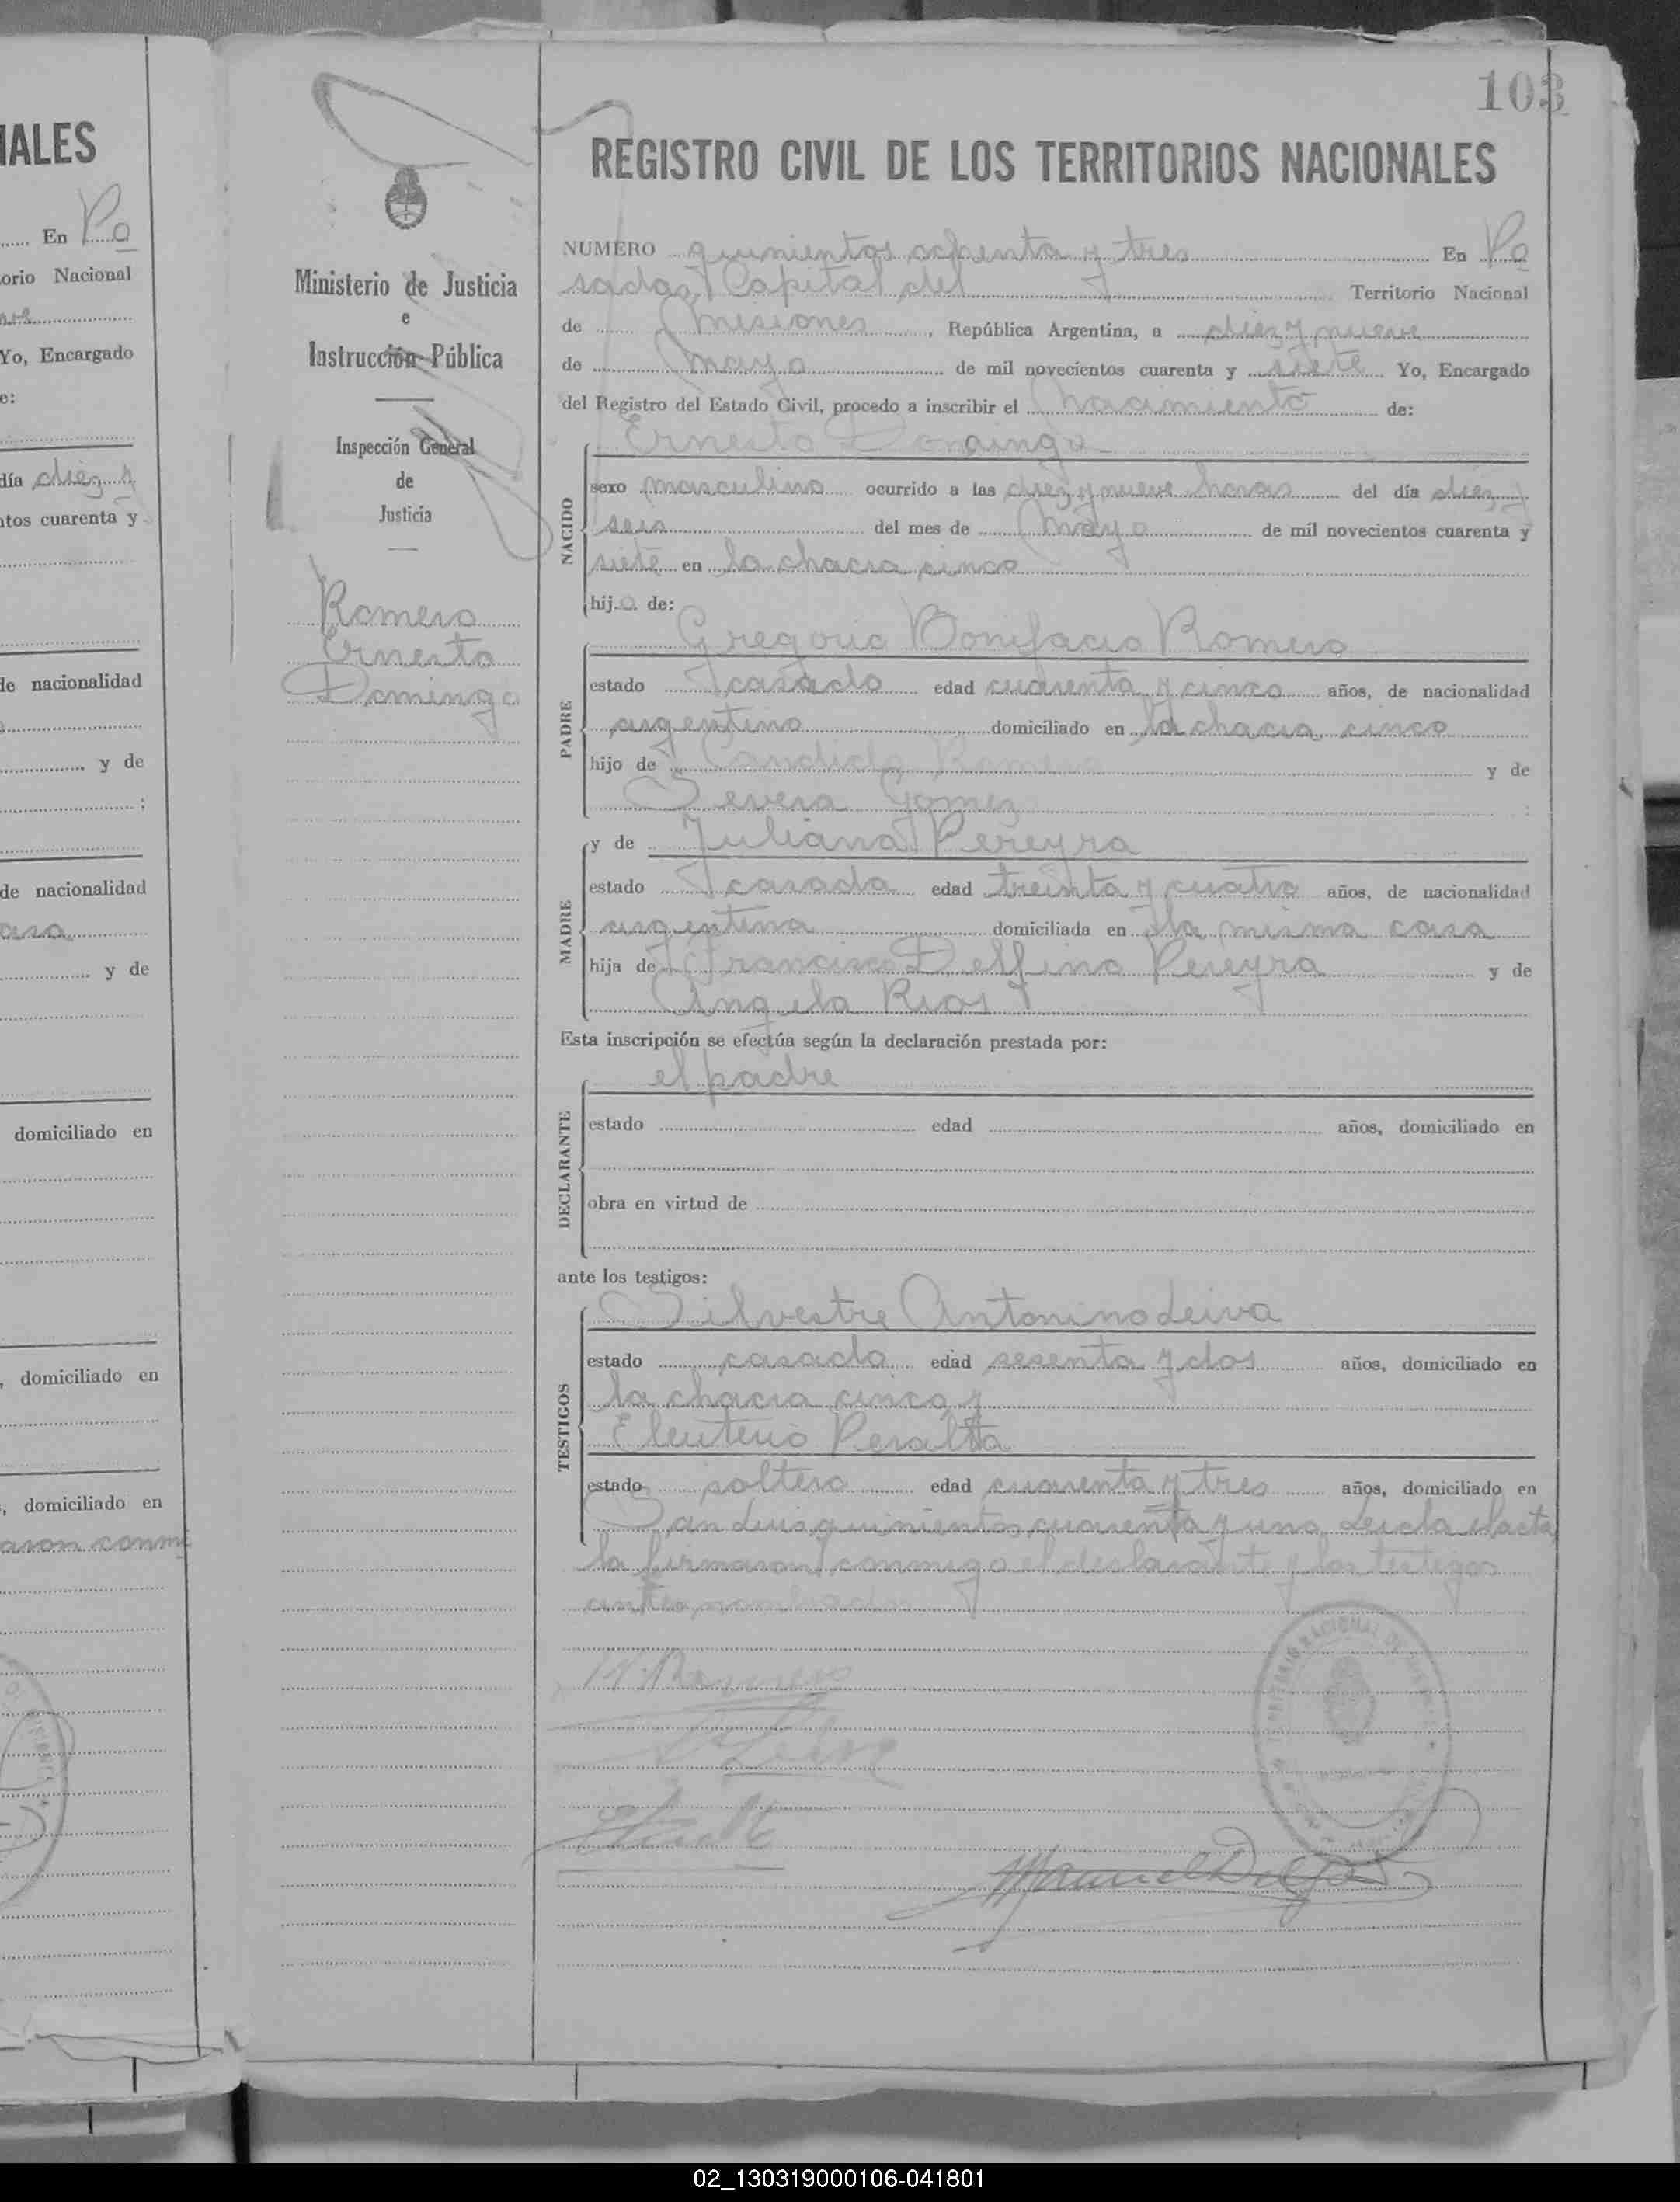 IALES
En Po
orio Nacional
Yo, Encargado
e:
día diez y
ntos cuarenta y
de nacionalidad
y de
;
de nacionalidad
casa
y de
domiciliado en
, domiciliado en
, domiciliado en
aron conmi
103
Ministerio de Justicia
e
Instrucción Pública
Inspección General
de
Justicia
Romero
Ernesto
Domingo
REGISTRO CIVIL DE LOS TERRITORIOS NACIONALES
NUMERO quinientos ochenta y tres En Po
sadas, Capital del Territorio Nacional
de Misiones, República Argentina, a diez y nueve
de Mayo de mil novecientos cuarenta y siete Yo, Encargado
del Registro del Estado Civil, procedo a inscribir el nacimiento de:
Ernesto Domingo
NACIDO
sexo masculino ocurrido a las diez y nueve horas del día diez y
seis del mes de Mayo de mil novecientos cuarenta y
siete en la chacra cinco
hijo de:
Gregorio Bonifacio Romero
PADRE
estado casado edad cuarenta y cinco años, de nacionalidad
argentino domiciliado en la chacra cinco
hijo de Candido Romero y de
Severa Gomez
y de Juliana Pereyra
MADRE
estado casada edad treinta y cuatro años, de nacionalidad
argentina domiciliada en la misma casa
hija de Francisco Delfino Pereyra y de
Angela Rios
Esta inscripción se efectúa según la declaración prestada por:
el padre
DECLARANTE
estado edad años, domiciliado en
obra en virtud de
ante los testigos:
Silvestre Antonino Leiva
TESTIGOS
estado casado edad sesenta y dos años, domiciliado en
la chacra cinco y
Eleuterio Peralta
estado soltero edad cuarenta y tres años, domiciliado en
San Luis quinientos cuarenta y uno. Leida el acta
la firmaron conmigo el declarante y los testigos
antes nombrados
Romero
Leiva
Manuel
02_130319000106-041801